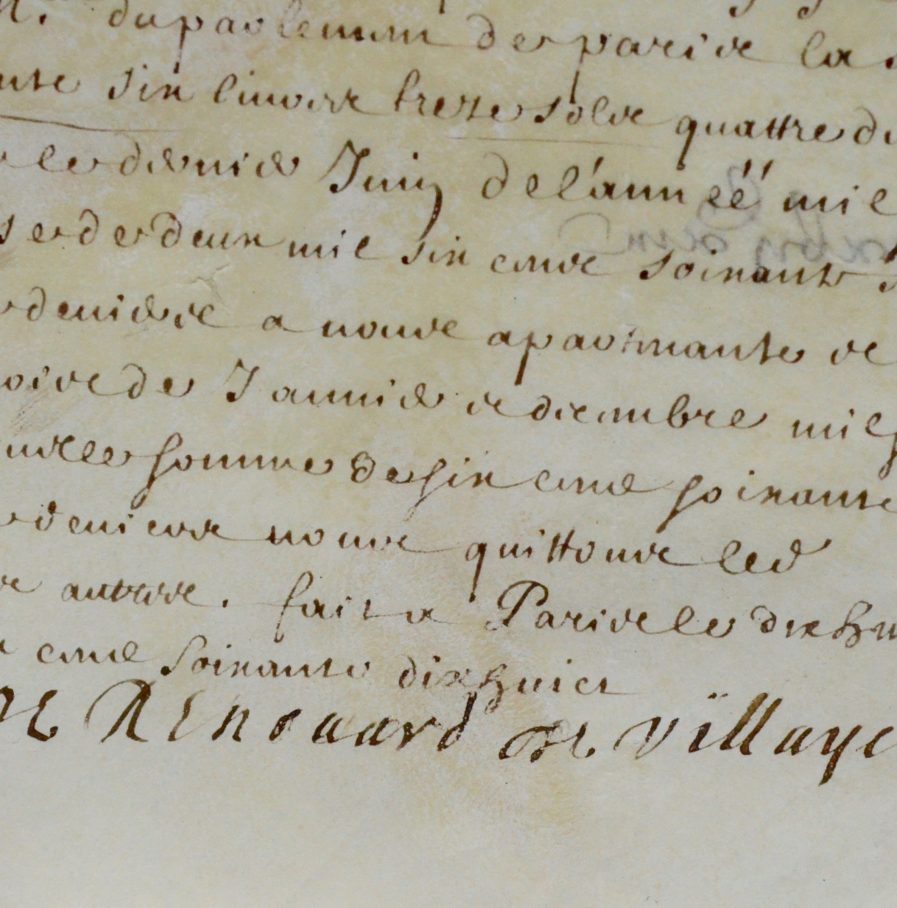 du parlement de paris la
six livres treze solz quattre d
le dernier Juin de l'année mil
deux mil six cens soixante
deniers a nous apartenante
de Janvier et decembre mil
somme de six cens soixante
deniers nous quittons led
autres. fait a Paris le dixhu
cens soixante dixhuict
Renouard de villaye